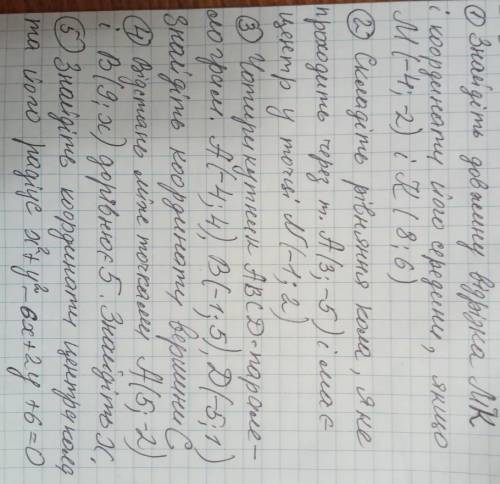 ① Знайдіть довжину відрізка МК
і координати його середини, якщо
М (-4; -2) і К (8; 6)
② Складіть рівняння кола, яке
проходить через т. А(3; -5) і має
центр у точці N(-1; 2)
③ Чотирикутник ABCD-парале-
лограм. А(-4; 4), В(-1; 5), D(-5; 1)
Знайдіть координати вершини С
④ Відстань між точками А(5; -2)
і В(9; х) дорівнює 5. Знайдіть х.
⑤ Знайдіть координати центра кола
та його радіус x²+y²-6x+2y+6=0